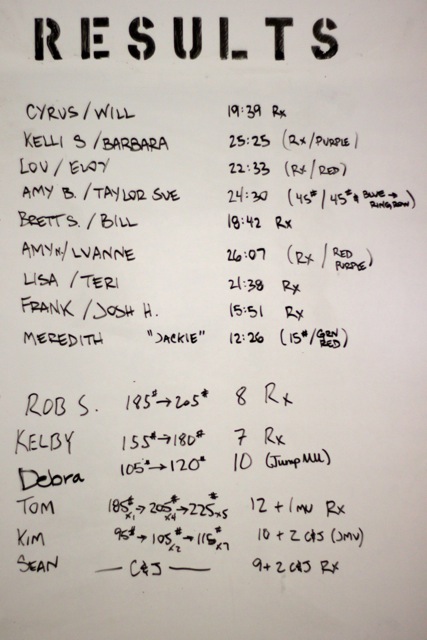 RESULTS
CYRUS / WILL 19:39 Rx
KELLI S / BARBARA 25:25 (Rx / PURPLE)
LOU / ELOY 22:33 (Rx / RED)
AMY B. / TAYLOR SUE 24:30 (45# / 45# & BLUE → RING ROW)
BRETT S. / BILL 18:42 Rx
AMY N / LUANNE 26:07 (Rx / RED PURPLE)
LISA / TERI 21:38 Rx
FRANK / JOSH H. 15:51 Rx
MEREDITH "JACKIE" 12:26 (15# / GRN RED)
ROB S. 185# → 205# 8 Rx
KELBY 155# → 180# 7 Rx
Debra 105# → 120# 10 (Jump MU)
TOM 185# x1 → 205# x4 → 225# x5 12 + 1 MU Rx
KIM 95# → 105# x2 → 115# x7 10 + 2 C&J (JMU)
SEAN — C&J — 9 + 2 C&J Rx